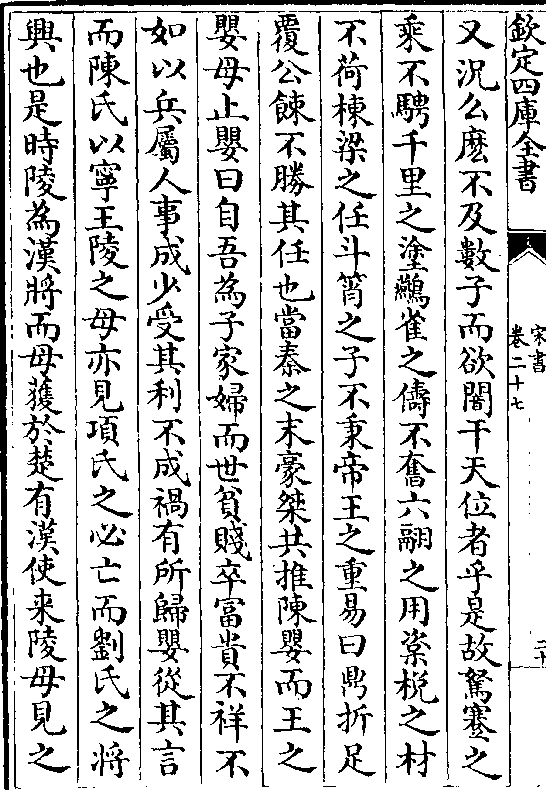 欽定四庫全書
宋書
卷二十七
二十
又況么麽不及數子而欲闇干天位者乎是故駑蹇之
乘不騁千里之塗鷰雀之儔不奮六翮之用楶梲之材
不荷棟梁之任斗筲之子不秉帝王之重易曰鼎折足
覆公餗不勝其任也當秦之末豪桀共推陳嬰而王之
嬰母止嬰曰自吾為子家婦而世貧賤卒富貴不祥不
如以兵屬人事成少受其利不成禍有所歸嬰從其言
而陳氏以寧王陵之母亦見項氏之必亡而劉氏之將
興也是時陵為漢將而母獲於楚有漢使来陵母見之